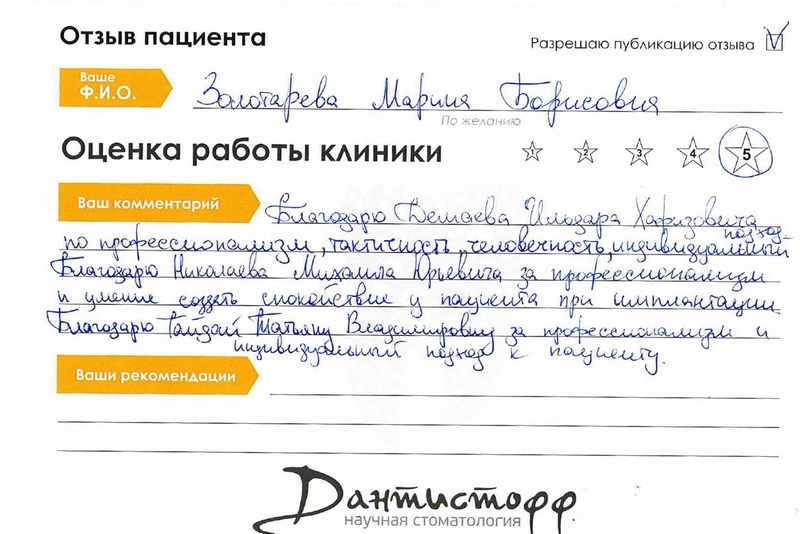 Отзыв пациента
Разрешаю публикацию отзыва
Ваше
Ф.И.О.
Золотарева Мария Борисовна
По желанию
Оценка работы клиники
1 2 3 4 5
Ваш комментарий
Благодарю Демаева Илдара Хафизовича
по профессионализм, тактичность, человечность, индивидуальный подход
Благодарю Николаева Михаила Юрьевича за профессионализм
и умение создать спокойствие у пациента при имплантации
Благодарю Гайдай Татьяну Владимировну за профессионализм и
индивидуальный подход к пациенту.
Ваши рекомендации
Дантистофф
научная стоматология